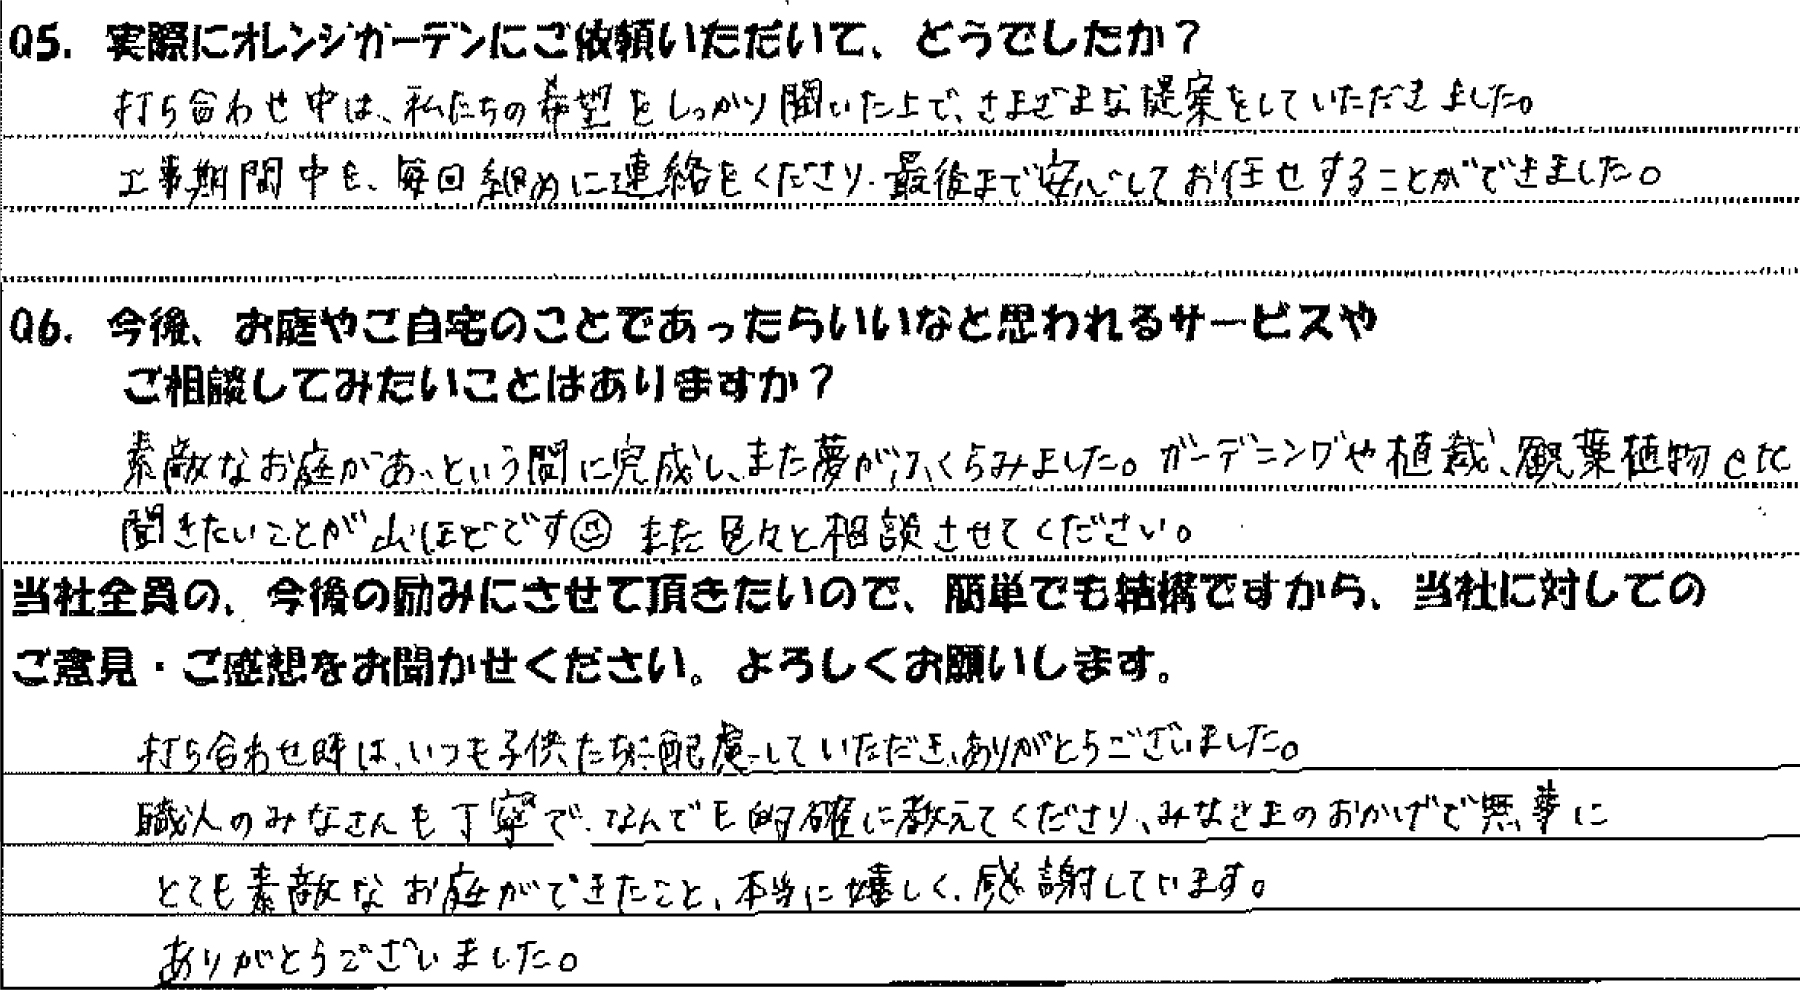 Q5. 実際にオレンジガーデンにご依頼いただいて、どうでしたか？
打ち合わせ中は、私たちの希望をしっかり聞いた上で、さまざまな提案をしていただきました。
工事期間中も、毎回細めに連絡をくださり、最後まで安心してお任せすることができました。
Q6. 今後、お庭やご自宅のことであったらいいなと思われるサービスや
ご相談してみたいことはありますか？
素敵なお庭があっという間に完成し、また夢がふくらみました。ガーデニングや植裁、観葉植物etc
聞きたいことが山ほどです☺ また色々と相談させてください。
当社全員の、今後の励みにさせて頂きたいので、簡単でも結構ですから、当社に対しての
ご意見・ご感想をお聞かせください。よろしくお願いします。
打ち合わせ時は、いつも子供たちに配慮していただき、ありがとうございました。
職人のみなさんも丁寧で、なんでも的確に教えてくださり、みなさまのおかげで無事に
とても素敵なお庭ができたこと、本当に嬉しく、感謝しています。
ありがとうございました。